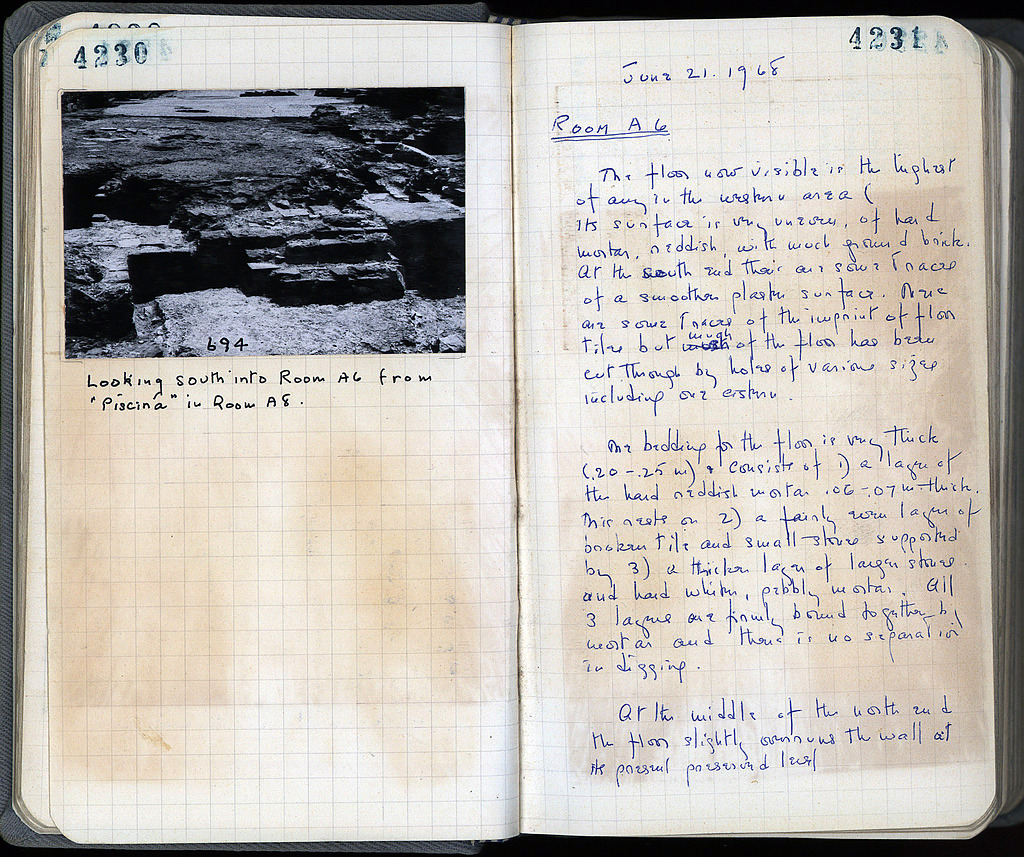 4230
694
Looking south into Room A6 from
"Piscina" in Room A8.
4231
June 21. 1968
ROOM A 6
The floor now visible is the highest
of any in the western area (
its surface is very uneven, of hard
mortar, reddish, with much ground brick.
At the south end their are some Traces
of a smoother plaster surface. There
are some Traces of the imprint of floor
Tiles but much of the floor has been
cut through by holes of various sizes
including one cistern.
The bedding for the floor is very thick
(.20 - .25 m) & consists of 1) a layer of
the hard reddish mortar .06-.07 m thick.
This rests on 2) a fairly even layer of
broken Tile and small stones supported
by 3) a thicker layer of larger stones
and hard whiter, pebbly mortar. All
3 layers are firmly bound together by
mortar and there is no separation
in digging.
At the middle of the north end
the floor slightly overruns the wall at
its present preserved level